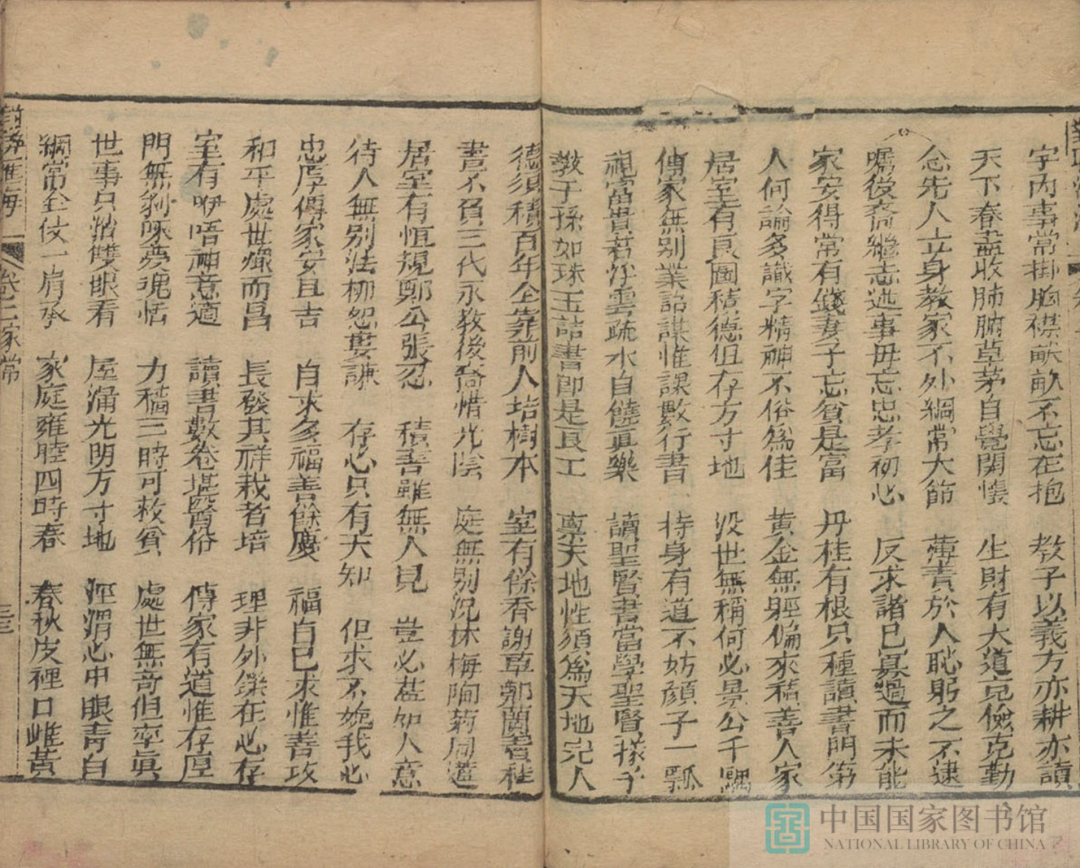 宇內事常掛胸襟畎畝不忘在抱　教子以義方亦耕亦讀
天下春盡收肺腑草茅自覺関懷　生財有大道克儉克勤
念先人立身教家不外綱常大節　薄責於人恥躬之不逮
囑後裔繼志述事毋忘忠孝初心　反求諸己寡過而未能
家安得常有錢妻子忘貧是富　丹桂有根只種讀書門第
人何論多識字精神不俗為佳　黃金無脛偏來積善人家
居室有良圖積德但存方寸地　没世無稱何必景公千駟
傳家無別業詒謀惟課數行書　持身有道不妨顏子一瓢
視富貴若浮雲疏水自饒真樂　讀聖賢書當學聖賢樣子
教子孫如珠玉詩書即是良工　稟天地性須為天地完人
德須積百年全靠前人培樹本　室有餘香謝草鄭蘭竇桂
書不負三代永教後裔惜光陰　庭無別況林梅陶菊周蓮
居室有恆規鄭公張忍　積善雖無人見　豈必甚如人意
待人無別法柳恕婁謙　存心只有天知　但求不媿我心
忠厚傳家安且吉　自求多福善餘慶　福自己求惟善攻
和平處世熾而昌　長發其祥栽者培　理非外鑠在心存
室有咿唔神意適　讀書數卷堪醫俗　傳家有道惟存厚
門無剝啄夢魂恬　力穡三時可救貧　處世無竒但率真
世事只消雙眼看　屋漏光明方寸地　涇渭心中眼青白
綱常全仗一肩承　家庭雍睦四時春　春秋皮裡口雌黃
卷二家常
中国国家图书馆
NATIONAL LIBRARY OF CHINA